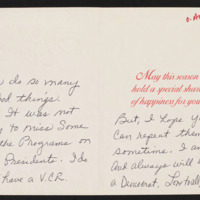 do so many
things.
It was not
to miss some
the Programs on
Presidents. I do
have a V.C.R.
May this season
hold a special shar
of happiness for you
But, I hope yo
can repeat them
sometime. I am
and always will
a Democrat.